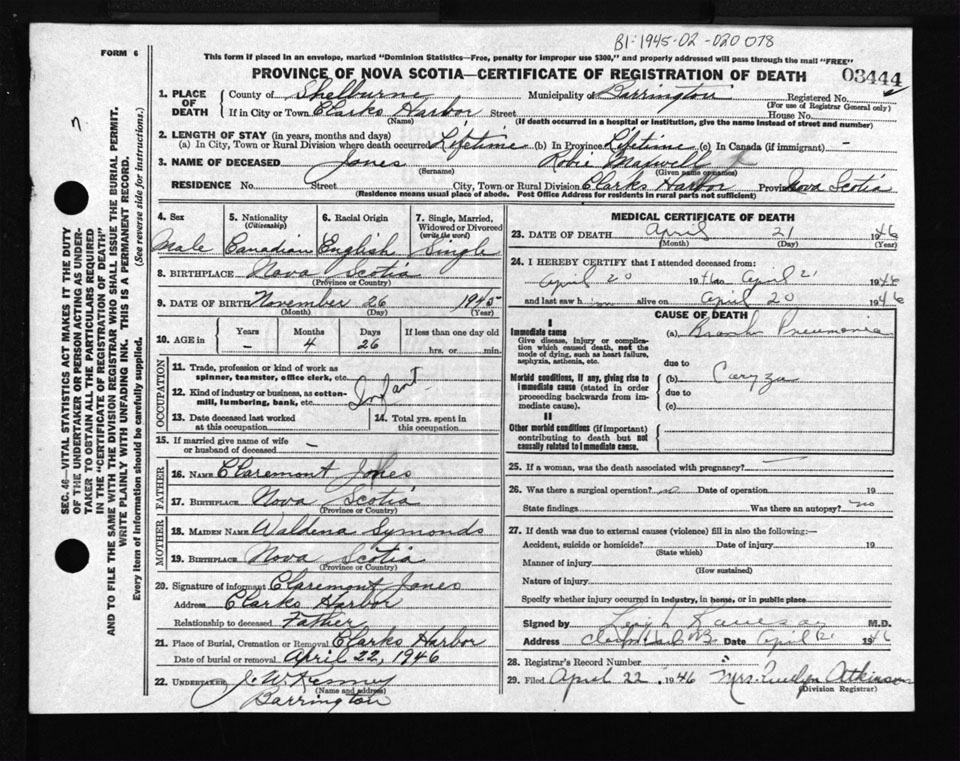 B1-1945-02-020078
FORM 6
This form if placed in an envelope, marked "Dominion Statistics—Free, penalty for improper use $300," and properly addressed will pass through the mail "FREE"
PROVINCE OF NOVA SCOTIA—CERTIFICATE OF REGISTRATION OF DEATH
03444
1. PLACE OF DEATH
County of Shelburne Municipality of Barrington Registered No.
(For use of Registrar General only)
If in City or Town Clarks Harbor Street House No.
(Name) (If death occurred in a hospital or institution, give the name instead of street and number)
2. LENGTH OF STAY (in years, months and days)
(a) In City, Town or Rural Division where death occurred Lifetime (b) In Province Lifetime (c) In Canada (if immigrant) -
3. NAME OF DECEASED Jones Robie Maxwell
(Surname) (Given name or names)
RESIDENCE No. Street City, Town or Rural Division Clarks Harbor Province Nova Scotia
(Residence means usual place of abode. Post Office Address for residents in rural parts not sufficient)
4. Sex
Male
5. Nationality (Citizenship)
Canadian
6. Racial Origin
English
7. Single, Married, Widowed or Divorced (write the word)
Single
8. BIRTHPLACE Nova Scotia
(Province or Country)
9. DATE OF BIRTH November 26 1945
(Month) (Day) (Year)
10. AGE in
Years Months Days If less than one day old
- 4 26 hrs. or min.
OCCUPATION
11. Trade, profession or kind of work as spinner, teamster, office clerk, etc.
12. Kind of industry or business, as cotton-mill, lumbering, bank, etc.
Infant
13. Date deceased last worked at this occupation
14. Total yrs. spent in this occupation
15. If married give name of wife or husband of deceased -
FATHER
16. NAME Claremont Jones
17. BIRTHPLACE Nova Scotia
(Province or Country)
MOTHER
18. MAIDEN NAME Waldena Symonds
19. BIRTHPLACE Nova Scotia
(Province or Country)
20. Signature of informant Claremont Jones
Address Clarks Harbor
Relationship to deceased Father
21. Place of Burial, Cremation or Removal Clarks Harbor
Date of burial or removal April 22, 1946
22. UNDERTAKER J. W. Kenney
(Name and address)
Barrington
MEDICAL CERTIFICATE OF DEATH
23. DATE OF DEATH April 21 1946
(Month) (Day) (Year)
24. I HEREBY CERTIFY that I attended deceased from:
April 20 1946 to April 21 1946
and last saw him alive on April 20 1946
CAUSE OF DEATH
I
Immediate cause
Give disease, injury or complication which caused death, not the mode of dying, such as heart failure, asphyxia, asthenia, etc.
(a) Broncho Pneumonia
due to
Morbid conditions, if any, giving rise to immediate cause (stated in order proceeding backwards from immediate cause).
(b) Coryza
due to
(c)
II
Other morbid conditions (if important) contributing to death but not causally related to immediate cause.
25. If a woman, was the death associated with pregnancy?
26. Was there a surgical operation? no Date of operation 19
State findings Was there an autopsy? no
27. If death was due to external causes (violence) fill in also the following:
Accident, suicide or homicide? Date of injury 19
(State which)
Manner of injury
(How sustained)
Nature of injury
Specify whether injury occurred in industry, in home, or in public place
Signed by M.D.
Address Date April 21 1946
28. Registrar's Record Number
29. Filed April 22 1946 Mrs. Evelyn Atkinson
(Division Registrar)
SEC. 46—VITAL STATISTICS ACT MAKES IT THE DUTY
OF THE UNDERTAKER OR PERSON ACTING AS UNDER-
TAKER TO OBTAIN ALL THE PARTICULARS REQUIRED
IN THE "CERTIFICATE OF REGISTRATION OF DEATH"
AND TO FILE THE SAME WITH THE DIVISION REGISTRAR WHO SHALL ISSUE THE BURIAL PERMIT.
WRITE PLAINLY WITH UNFADING INK. THIS IS A PERMANENT RECORD.
Every item of information should be carefully supplied. (See reverse side for instructions.)